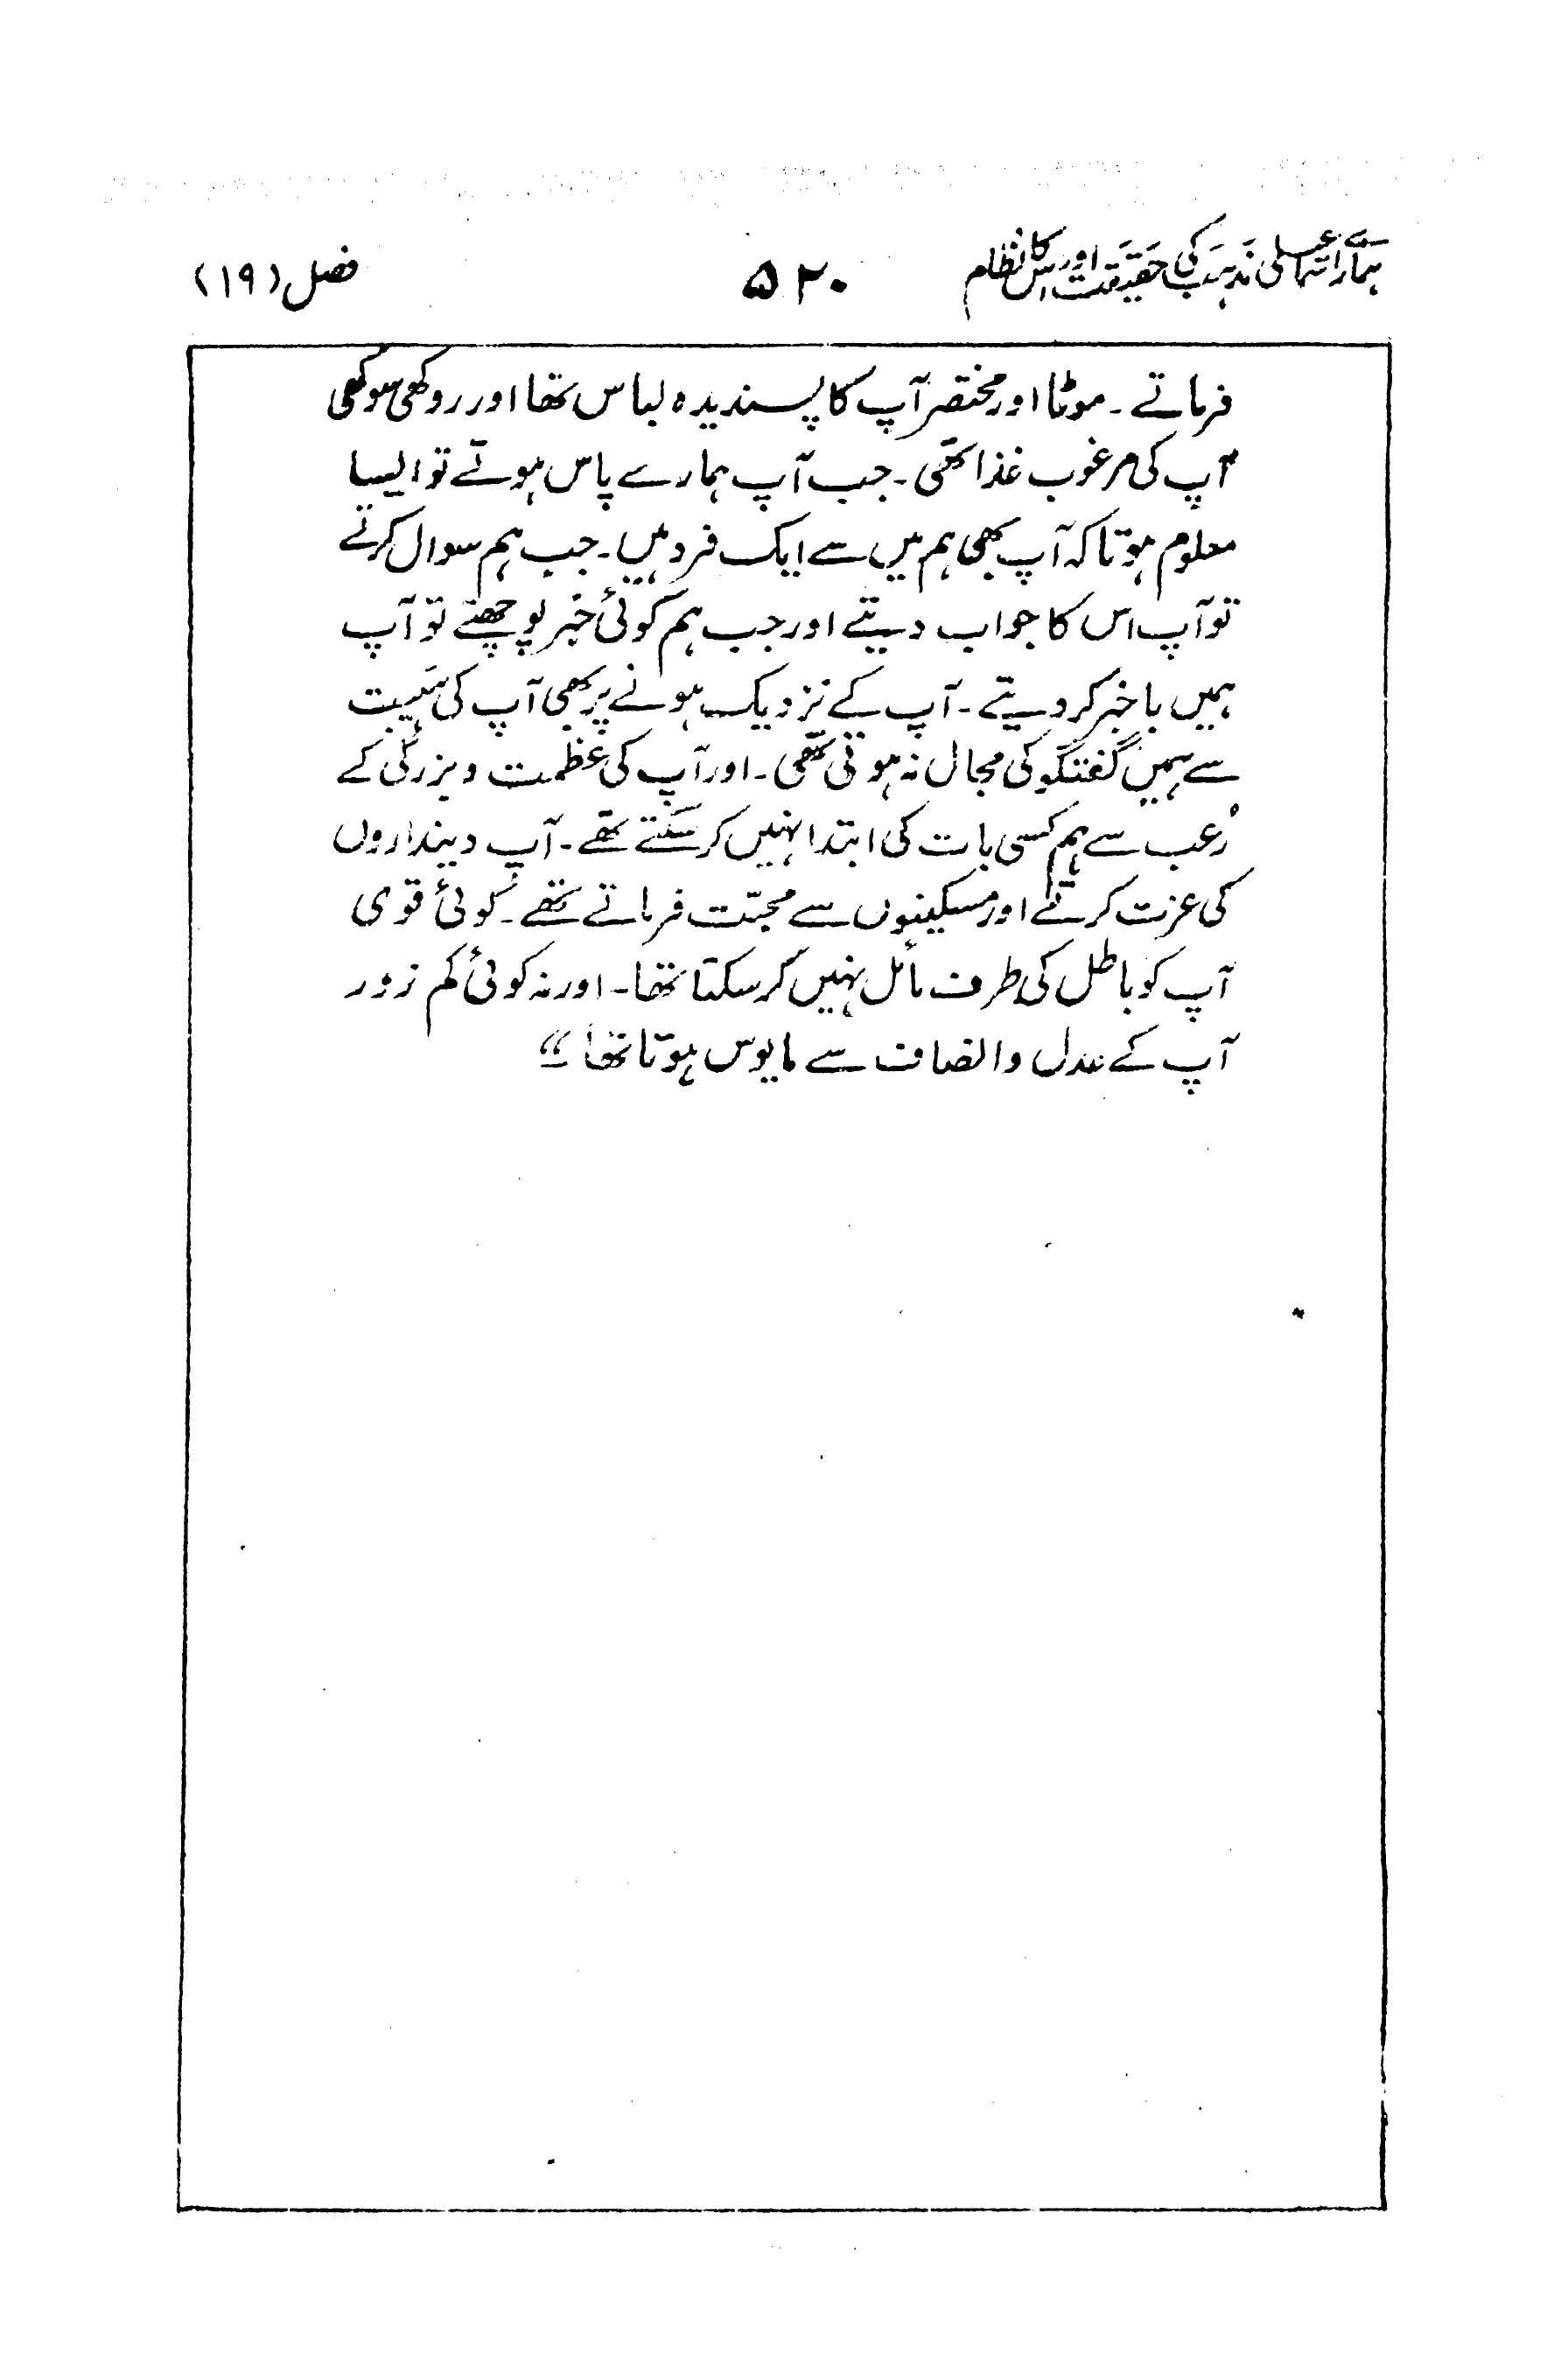 ہمارے اسماعیلی مذہب کی حقیقت اور اس کا نظام
۵۲۰
فصل (۱۹)
فرماتے ۔ موٹا اور مختصر آپ کا پسندیدہ لباس تھا اور روکھی سوکھی
آپ کی مرغوب غذا تھی ۔ جب آپ ہمارے پاس ہوتے تو ایسا
معلوم ہوتا کہ آپ بھی ہم میں سے ایک فرد ہیں ۔ جب ہم سوال کرتے
تو آپ اس کا جواب دیتے اور جب ہم کوئی خبر پوچھتے تو آپ
ہمیں باخبر کر دیتے ۔ آپ کے نزدیک ہونے پر بھی آپ کی ہَیبت
سے ہمیں گفتگو کی مجال نہ ہوتی تھی ۔ اور آپ کی عظمت و بزرگی کے
رُعب سے ہم کسی بات کی ابتدا نہیں کر سکتے تھے ۔ آپ دینداروں
کی عزت کرتے اور مسکینوں سے محبّت فرماتے تھے ۔ کوئی قوی
آپ کو باطل کی طرف مائل نہیں کر سکتا تھا ۔ اور نہ کوئی کم زور
آپ کے عدل و انصاف سے مایوس ہوتا تھا ؛؛